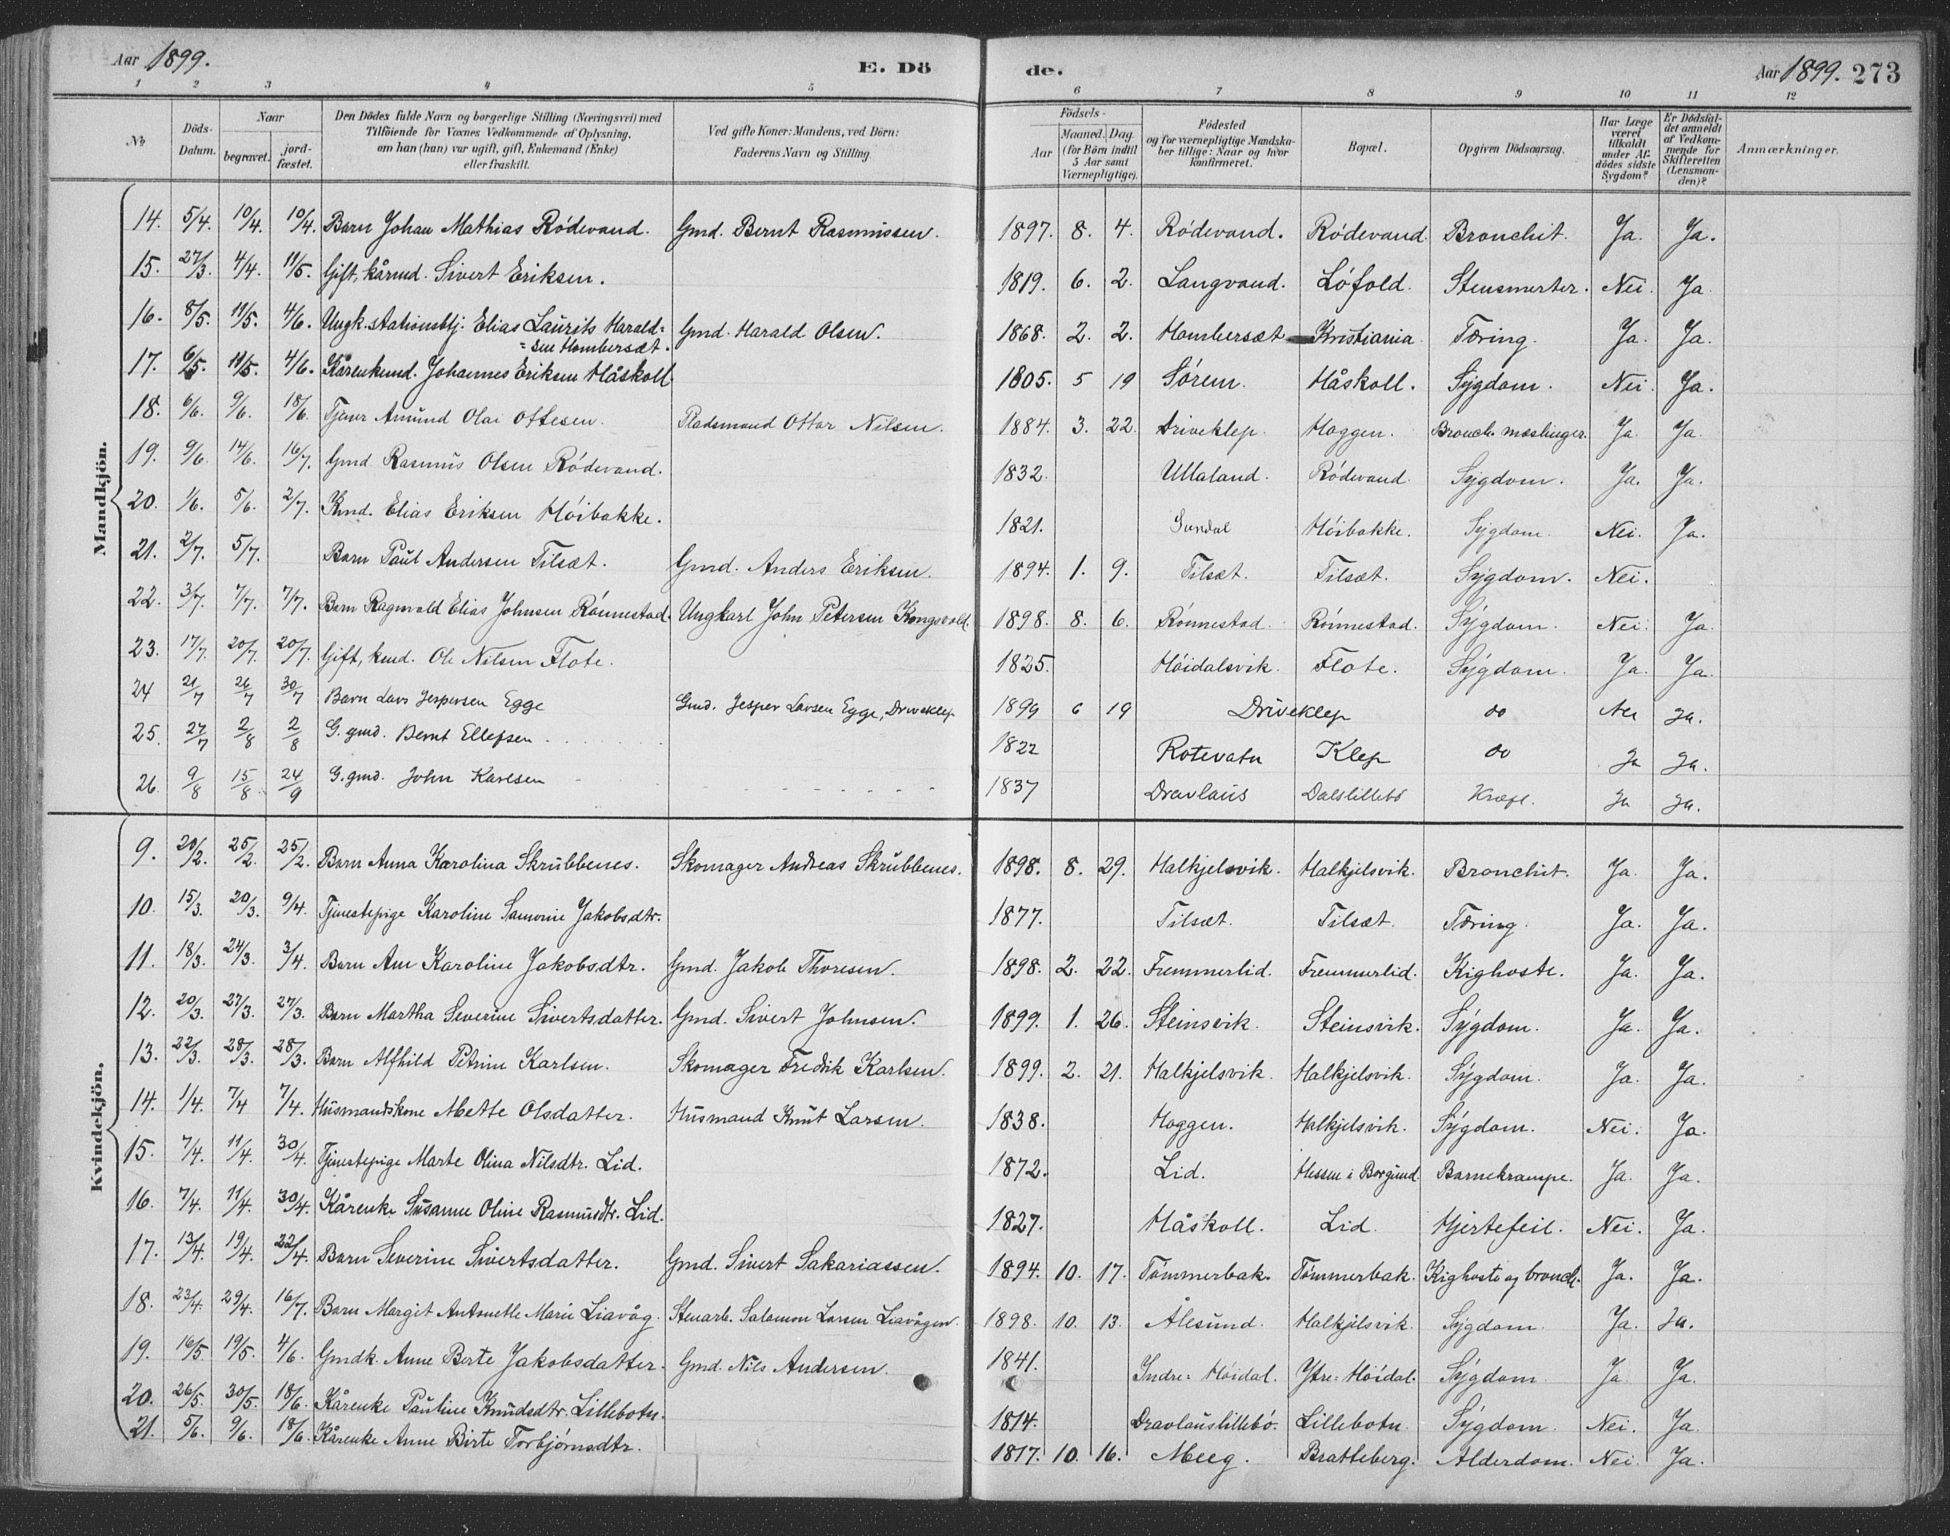 Aar 1899. E. Dö de. Aar 1899. 273
1 2 3 4 5 6 7 8 9 10 11 12
No Döds-Datum. Naar begravet. jord-fæstet. Den Dödes fulde Navn og borgerlige Stilling (Næringsvei) med Tilföiende for Voxnes Vedkommende af Oplysning, om han (hun) var ugift, gift, Enkemand (Enke) eller fraskilt. Ved gifte Koner: Mandens, ved Börn: Faderens Navn og Stilling. Födsels- Aar Maaned. Dag. (for Börn indtil 5 Aar samt Værnepligtige). Födested og for værnepligtige Mandskaber tillige: Naar og hvor konfirmeret. Bopæl. Opgiven Dödsaarsag. Har Læge været tilkaldt under Afdödes sidste Sygdom? Er Dödsfaldet anmeldt af Vedkommende for Skifteretten (Lensmanden)? Anmærkninger.
Mandkjön.
14. 5/4. 10/4. 10/4. Barn Johan Mathias Rödevand. Gmd. Bernt Rasmussen. 1897. 8. 4. Rödevand. Rödevand. Bronchit. Ja. Ja.
15. 27/3. 4/4. 11/5. Gift, kårmd. Sivert Eriksen. 1819. 6. 2. Langvand. Löfold. Stensmerter. Nei. Ja.
16. 8/5. 11/5. 4/6. Ungk. stationsbtj. Elias Laurits Harald=
=sen Hambersæt. Gmd. Harald Olsen. 1868. 2. 2. Hambersæt. Kristiania. Tæring. Ja. Ja.
17. 6/5. 11/5. 4/6. Kårenkemd. Johannes Eriksen Håskoll. 1805. 5 19 Sörem. Håskoll. Sýgdom. Nei. Ja.
18. 6/6. 9/6. 18/6. Tjener Amund Olai Ottesen. Pladsmand Ottar Nilsen. 1884. 3. 22. Driveklep. Haggen. Bronch. mæslinger. Ja. Ja.
19. 9/6. 14/6. 16/7. Gmd Rasmus Olsen Rödevand. 1832. Ullaland. Rödevand. Sýgdom. Ja. Ja.
20. 1/6. 5/6. 2/7. Kmd. Elias Eriksen Höibakke. 1821. Sundal Höibakke. Sýgdom. Nei. Ja.
21. 2/7. 5/7. Barn Paul Andersen Tilsæt. Gmd. Anders Eriksen. 1894. 1. 9. Tilsæt. Tilsæt. Sýgdom. Nei.
22. 3/7. 7/7. 7/7. Barn Ragnvald Elias Johnsen Rönnestad. Ungkarl John Petersen Kongsvold. 1898. 8. 6. Rönnestad. Rönnestad. Sýgdom. Nei. Ja.
23. 17/7. 20/7. 20/7. Gift, kmd. Ole Nilsen Flote. 1825. Höidalsvik. Flote. Sýgdom. Ja. Ja.
24 21/7 26/7 30/7 Barn Lars Jespersen Egge Gmd. Jesper Larsen Egge, Driveklep 1899 6 19 Driveklep do Nei Ja.
25. 27/7 2/8 2/8 G. gmd. Bernt Ellefsen 1822 Rotevatn Klep do Ja Ja.
26. 9/8 15/8 24/9 G. gmd. John Karlsen 1837 Dravlaus Dalslillebö Kræft. Ja Ja.
Kvindekjön.
9. 20/2. 25/2. 25/2. Barn Anna Karolina Skrubbenes. Skomager Andreas Skrubbenes. 1898. 8. 29. Halkjelsvik. Halkjelsvik. Bronchit. Ja. Ja.
10. 15/3. 20/3. 9/4. Tjenestepige Karoline Samonie Jakobsdtr. 1877. Tilsæt. Tilsæt. Tæring. Ja. Ja.
11. 18/3. 24/3. 3/4. Barn Ane Karoline Jakobsdtr. Gmd. Jakob Thoresen. 1898. 2. 22. Fremmerlid. Fremmerlid. Kighoste. Ja. Ja.
12. 20/3. 27/3. 27/3. Barn Martha Severine Sivertsdatter. Gmd. Sivert Johnsen. 1899. 1. 26. Steinsvik. Steinsvik. Sýgdom. Ja. Ja.
13. 22/3. 28/3. 28/3. Barn Alfhild Petrine Karlsen. Skomager Fredrik Karlsen. 1899. 2. 21. Halkjelsvik. Halkjelsvik. Sýgdom. Ja. Ja.
14. 1/4. 7/4 7/4. Husmandskone Mette Olsdatter. Husmand Knut Larsen. 1838. Haggen. Halkjelsvik. Sýgdom. Nei. Ja.
15. 7/4. 11/4. 30/4. Tjenestepige Marte Olina Nilsdtr. Lid. 1872. Lid. Hessen i Borgund. Barnekrampe. Ja. Ja.
16. 7/4. 11/4. 30/4. Kårenke Susanne Oline Rasmusdtr. Lid. 1827. Håskoll. Lid. Hjertefeil. Nei. Ja.
17. 13/4. 19/4. 22/4. Barn Severine Sivertsdatter. Gmd. Sivert Sakariassen. 1894. 10. 17. Tömmerbak. Tömmerbak. Kighoste og bronch. Ja. Ja.
18. 23/4. 29/4. 16/7. Barn Margit Antonette Marie Liavåg. Stenarb. Salamon Larsen Liavågen. 1898. 10. 13. Ålesund. Halkjelsvik. Sýgdom. Ja. Ja.
19. 16/5. 19/5. 4/6. Gmdk. Anne Berte Jakobsdatter. Gmd. Nils Andersen. 1841. Indre=Höidal. Ytre=Höidal. Sýgdom. Ja Ja.
20. 26/5. 30/5. 18/6. Kårenke Pauline Knudsdtr. Lillebotn. 1814. Dravlauslillebö. Lillebotn. Sýgdom. Nei. Ja.
21. 5/6. 9/6. 18/6. Kårenke Anne Birte Torbjörnsdtr. 1817. 10. 16. Meeg. Bratteberg. Alderdom. Nei. Ja.